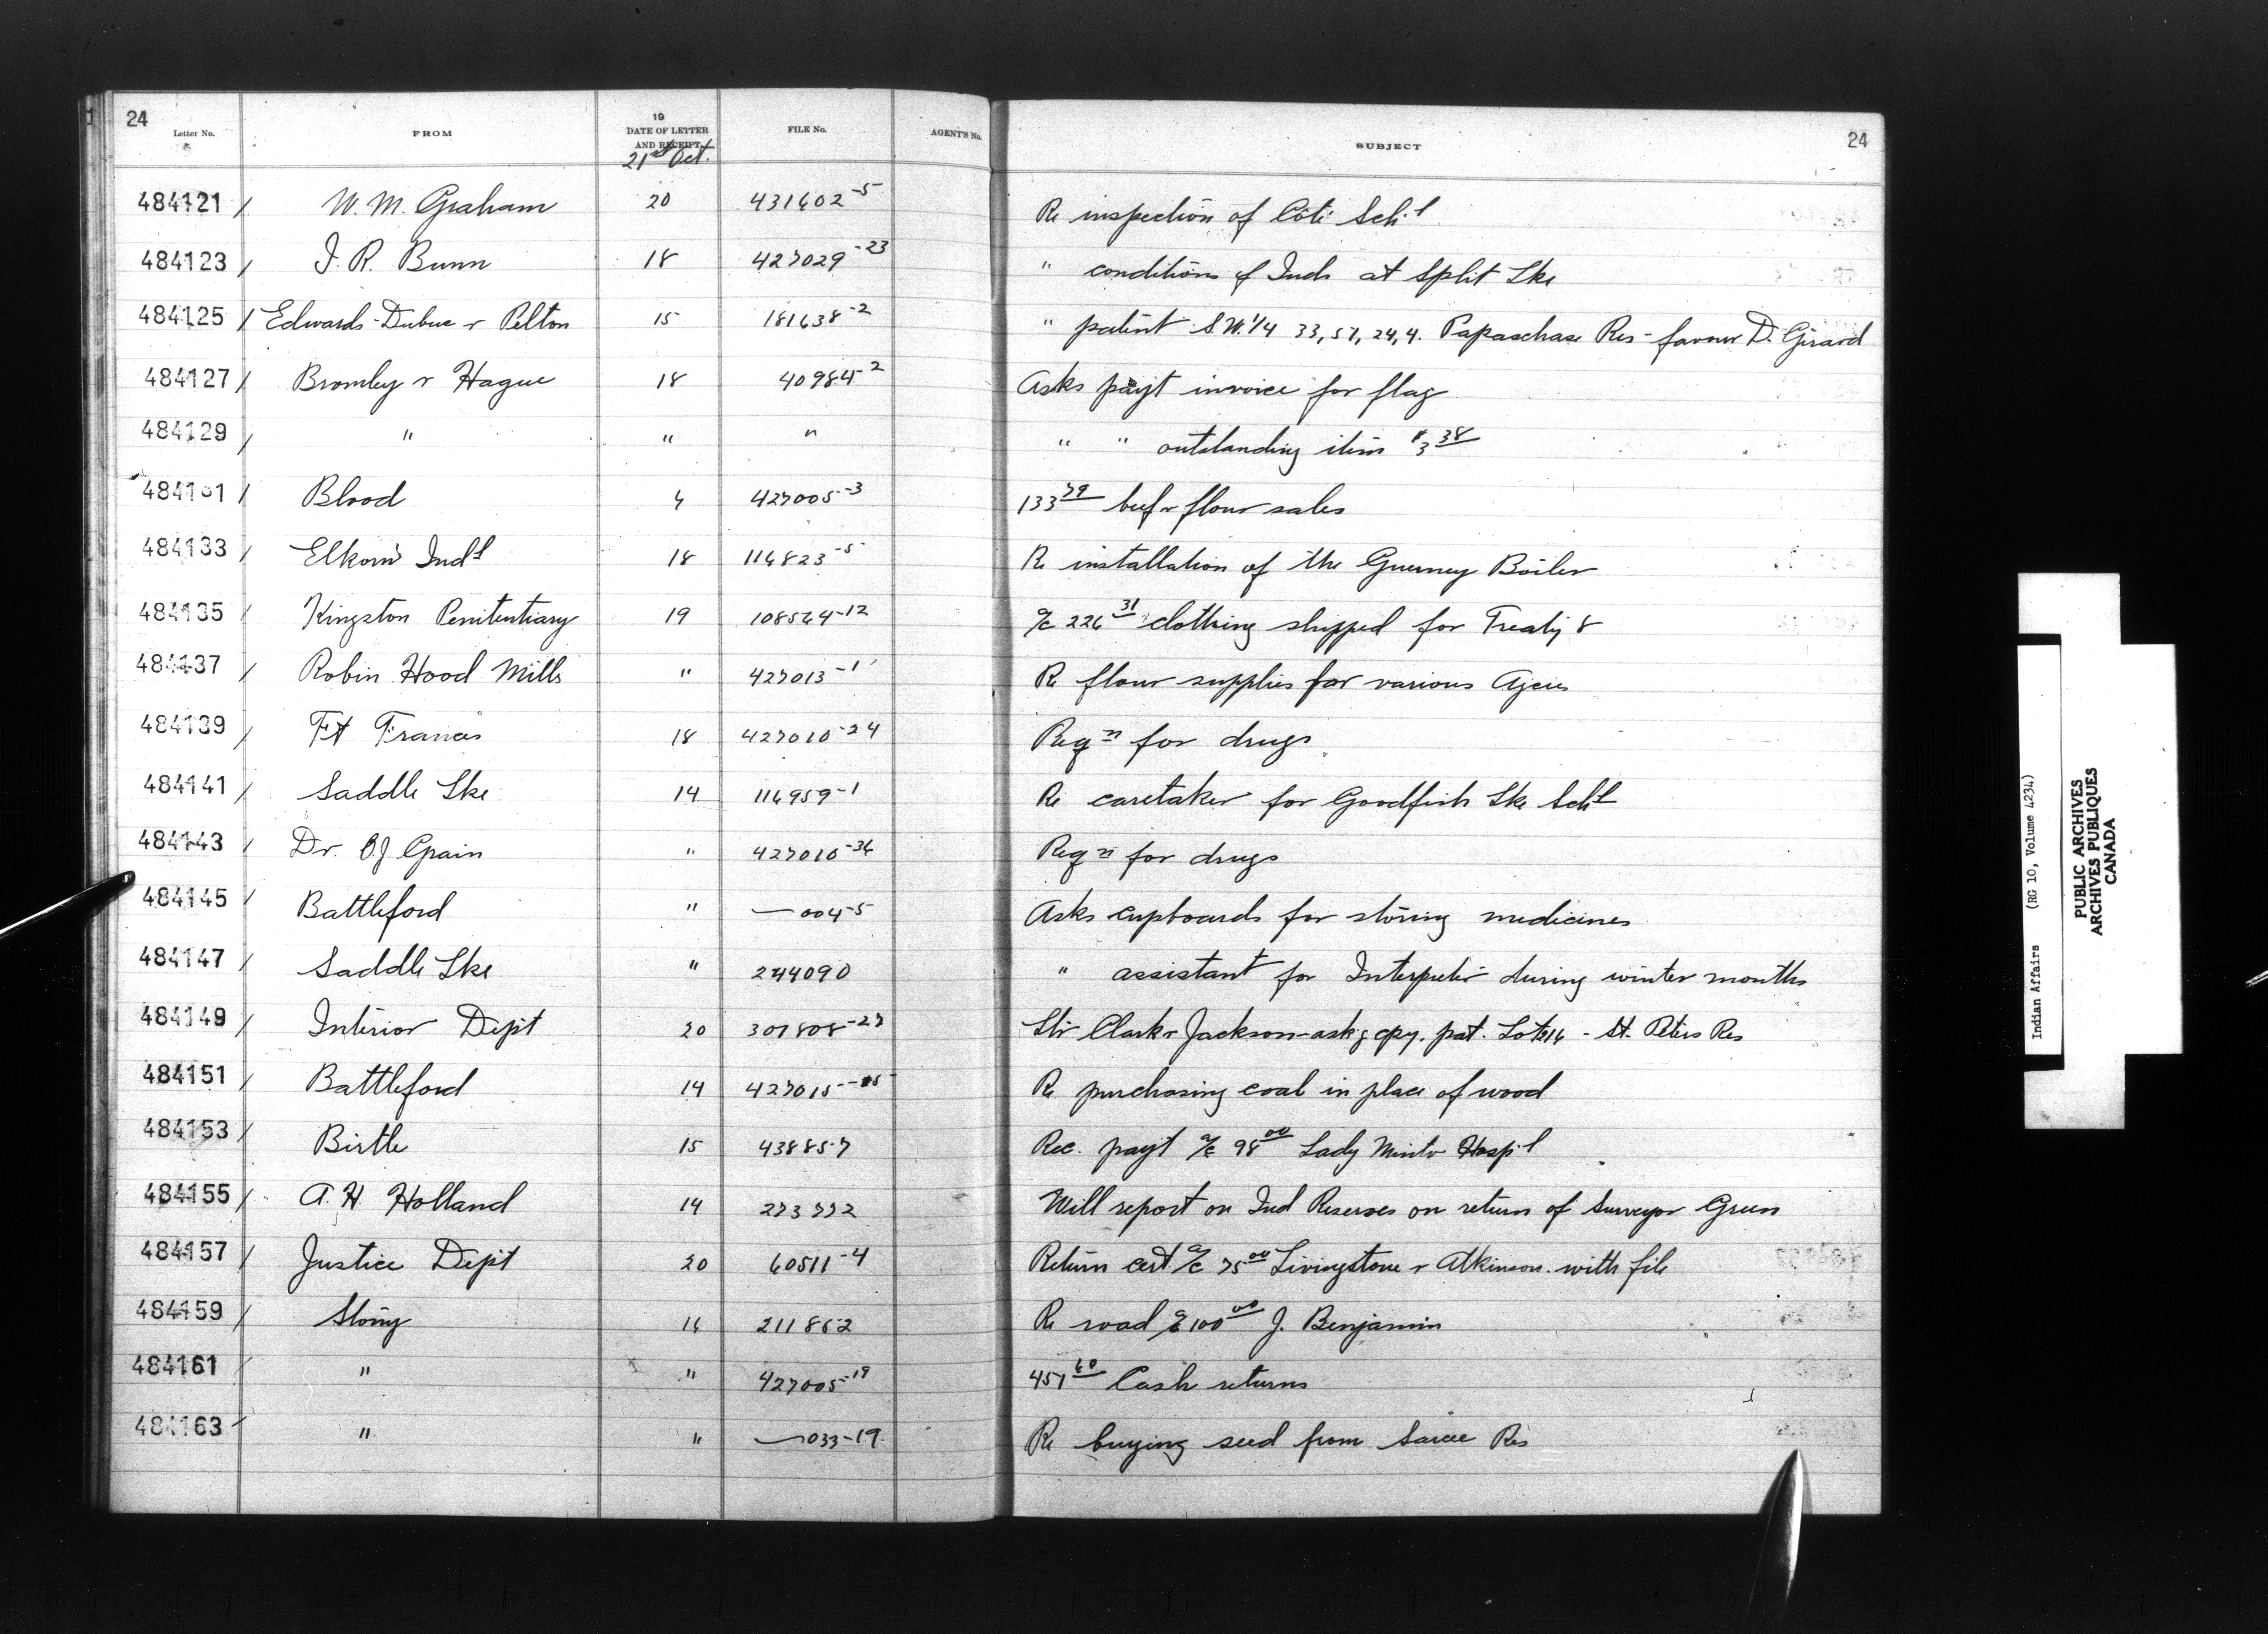 24 24
Letter No. FROM 19 DATE OF LETTER AND RECEIPT FILE No. AGENT'S No. SUBJECT
21st Oct.
484121 / W. M. Graham 20 431602-5 Re inspection of Côté Sch.l
484123 / J. R. Bunn 18 427029-23 " conditions of Inds at Split Lke
484125 / Edwards-Dubuc & Pelton 15 181638-2 " patent S.W. 1/4 33, 51, 24, 4. Papaschase Res - favour D. Girard
484127 / Bromley & Hague 18 40984-2 Asks payt invoice for flag
484129 / " " " " " outstanding item $3 38
484131 / Blood 4 427005-3 133 79 beef & flour sales
484133 / Elkorn Indl 18 116823-5 Re installation of the Guerney Boiler
484135 / Kingston Penitentiary 19 108564-12 a/c 226 31 clothing shipped for Treaty 8
484137 / Robin Hood Mills " 427013-1 Re flour supplies for various Agcies
484139 / Ft Frances 18 427010-24 Reqn for drugs
484141 / Saddle Lke 14 116959-1 Re caretaker for Goodfish Lke Schl
484143 / Dr. O J Grain " 427010-36 Reqn for drugs
484145 / Battleford " — 004-5 Asks cupboards for storing medicines
484147 / Saddle Lke " 244090 " assistant for Interpreter during winter months
484149 / Interior Dept 20 307808-27 Ltr Clark & Jackson - askg cpy. pat. Lot 216 - St. Peters Res
484151 / Battleford 14 427015-5 Re purchasing coal in place of wood
484153 / Birtle 15 438857 Rec. payt a/c 98 00 Lady Minto Hosp.l
484155 / A. H. Holland 14 273772 Will report on Ind Reserves on return of Surveyor Green
484157 / Justice Dept 20 60511-4 Return cert a/c 75 00 Livingstone & Atkinson. with file
484159 / Stony 16 211862 Re road a/c 100 00 J. Benjamin
484161 / " " 427005-19 451 60 Cash returns
484163 / " " — 033-19 Re buying seed from Sarcee Res
Indian Affairs (RG 10, Volume 4234)
PUBLIC ARCHIVES
ARCHIVES PUBLIQUES
CANADA